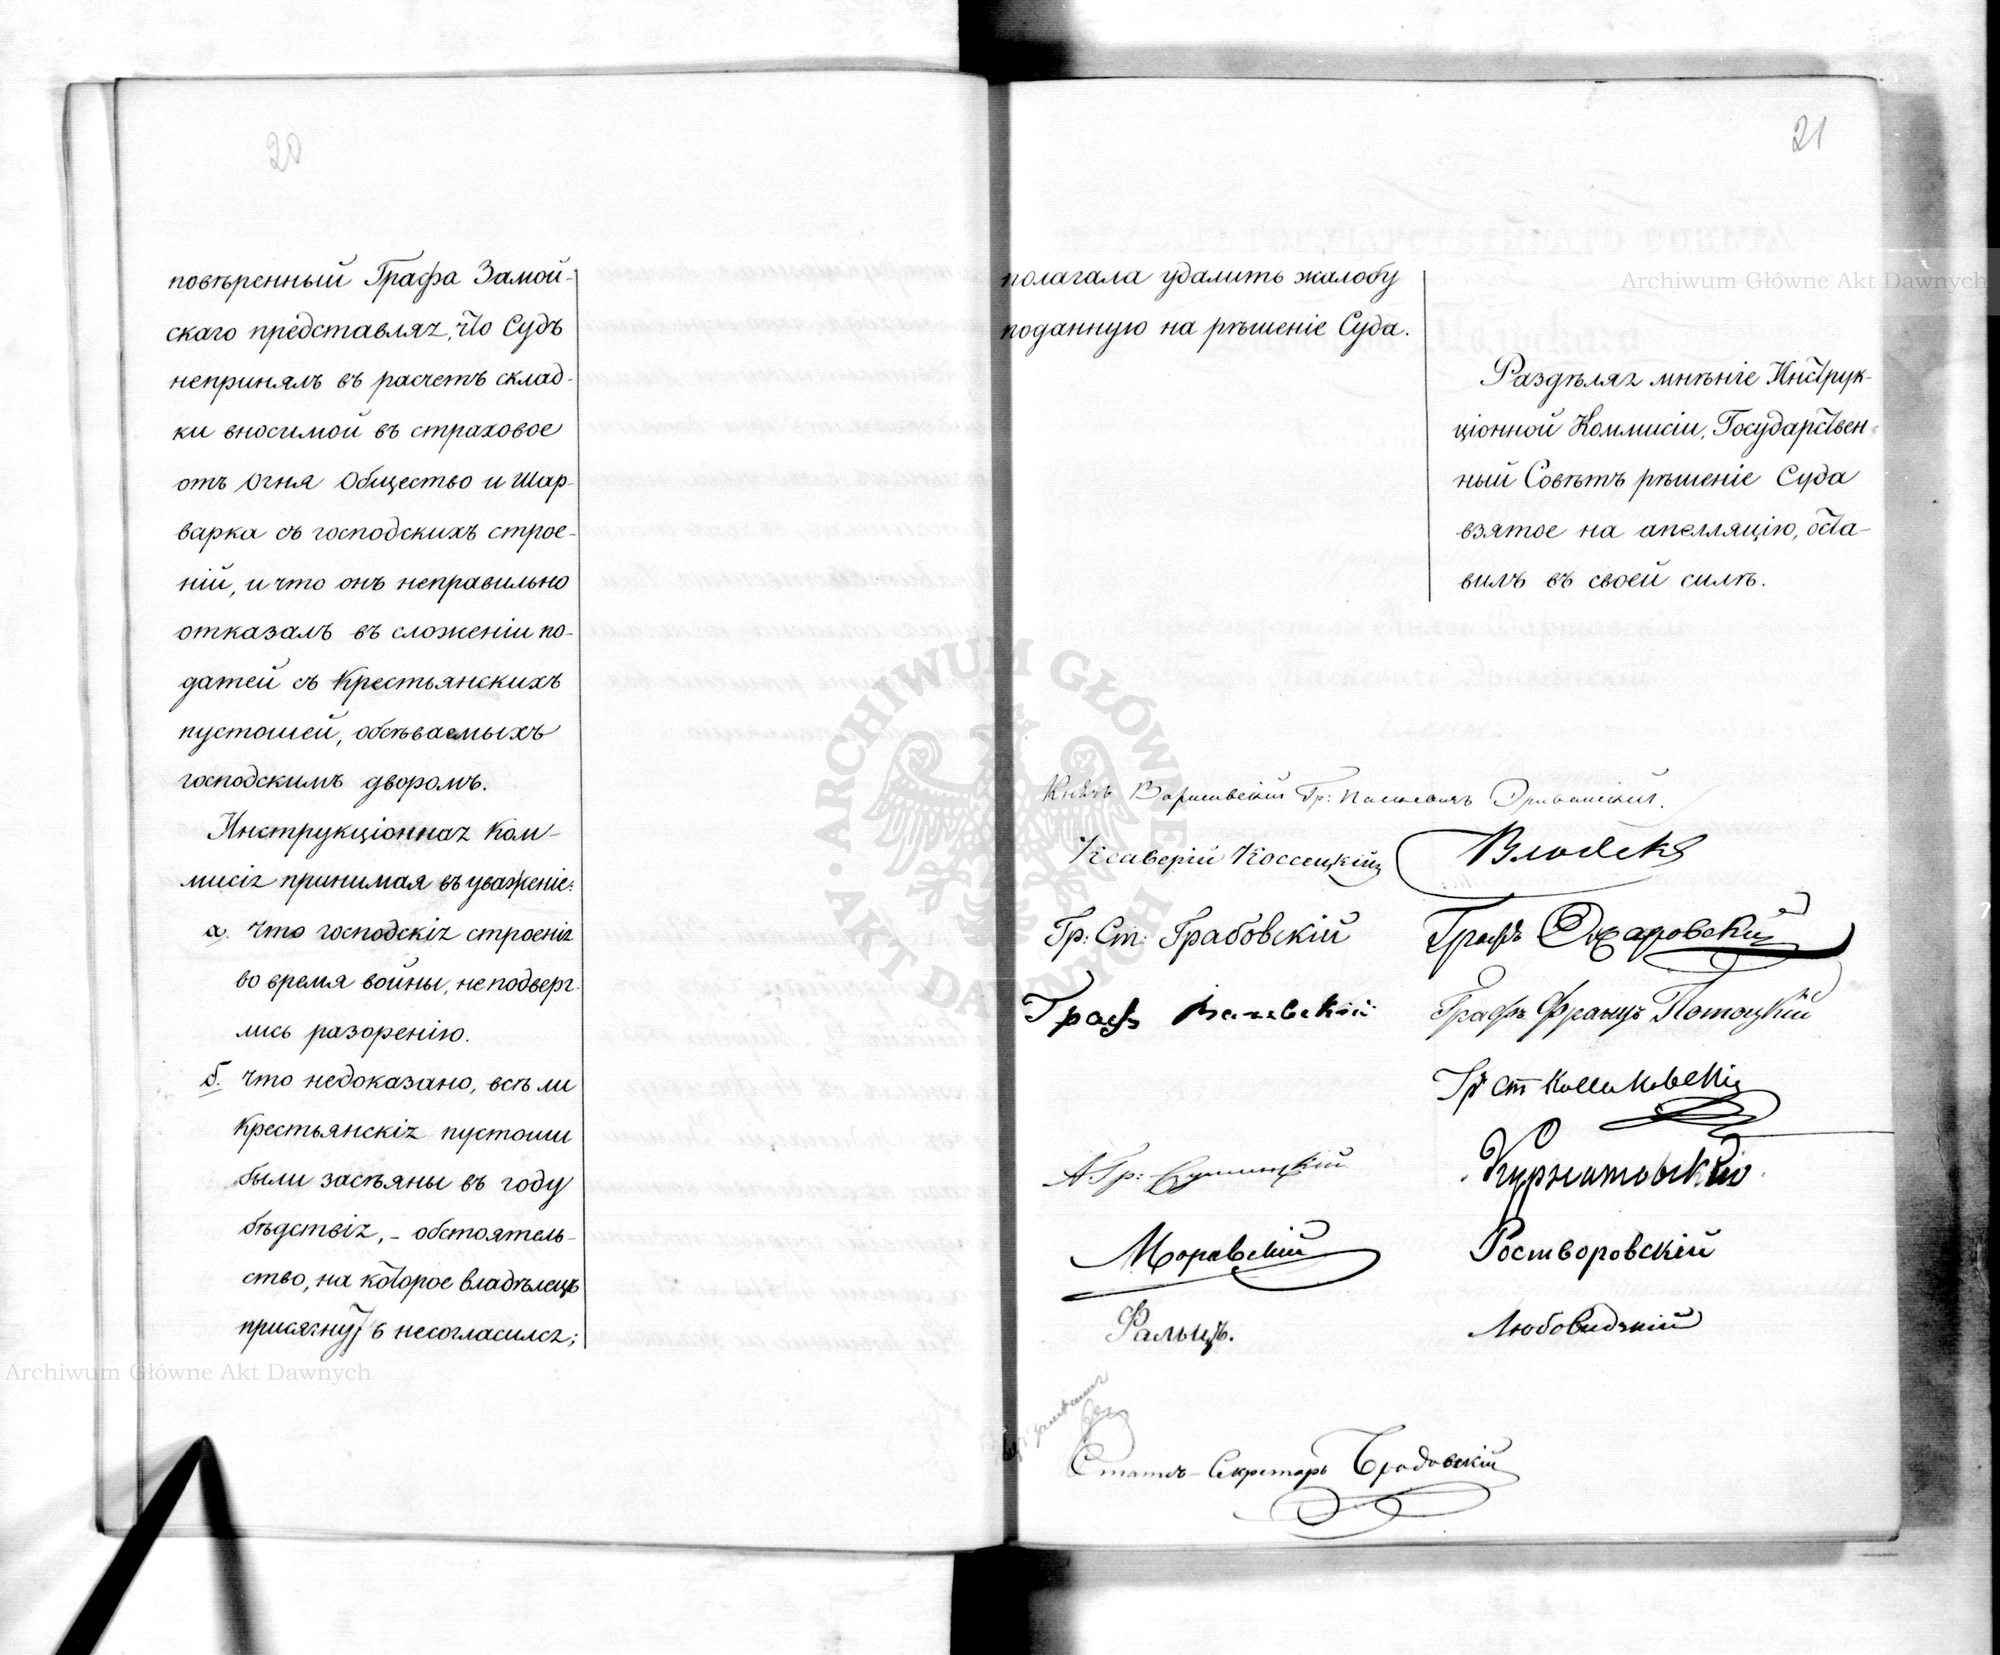 20
повѣренный Графа Замой-
скаго представляя, что Судъ
непринялъ въ расчетъ склад-
ки вносимой въ страховое
отъ огня Общество и Шар-
варка съ господскихъ строе-
ній, и что онъ неправильно
отказалъ въ сложеніи по-
датей съ Крестьянскихъ
пустошей, обсѣваемыхъ
господскимъ дворомъ.
Инструкціонная Ком-
мисія принимая въ уваженіе:
а. что господскія строенія
во время войны, неподверг-
лись разоренію.
б. что недоказано, всѣ ли
Крестьянскія пустоши
были засѣяны въ году
бѣдствія, - обстоятель-
ство, на которое владѣлецъ
присягнуть несогласился;
21
полагала удалить жалобу
поданную на рѣшеніе Суда.
Раздѣляя мнѣніе Инструк-
ціонной Коммисіи, Государствен-
ный Совѣтъ рѣшеніе Суда
взятое на апелляцію, оста-
вилъ въ своей силѣ.
Князь Варшавскій Гр: Паскевичъ Эриванскій.
Ксаверій Коссецкій
Гр: Ст: Грабовскій
Графъ Ожаровскій
Графъ
Графъ Францъ Потоцкій
Гр Ст
А Гр:
Курнатовскій
Моравскій
Ростворовскій
Фальцъ.
Любовидзкій
Статсъ-Секретарь Бродовскій
Archiwum Główne Akt Dawnych
Archiwum Główne Akt Dawnych
ARCHIWUM GŁÓWNE AKT DAWNYCH